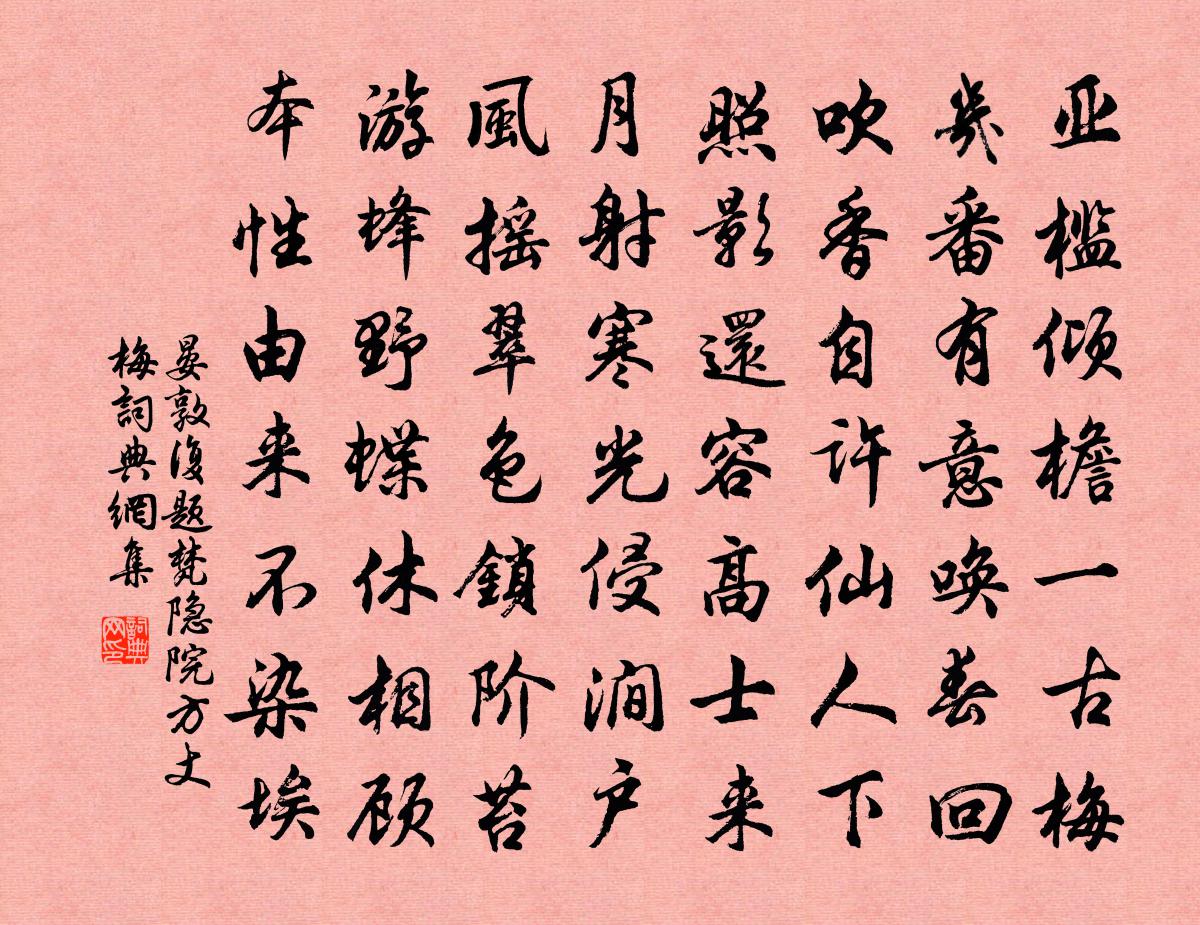 亚槛倾檐一古梅
幾番有意唤春回
吹香自许仙人下
照影還容高士来
月射寒光侵涧户
風摇翠色鎖阶苔
游蜂野蝶休相顾
本性由来不染埃
晏敦復题梵隐院方丈
梅詞典網集
詞典
网印